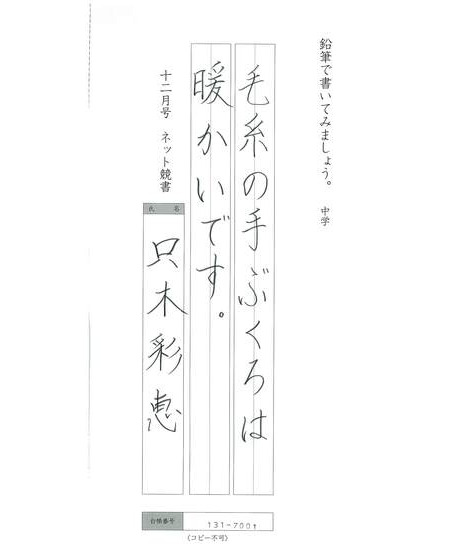 鉛筆で書いてみましょう。 中学
毛糸の手ぶくろは
暖かいです。
十二月号 ネット競書
氏名
只木彩恵
台帳番号 131-7001
（コピー不可）